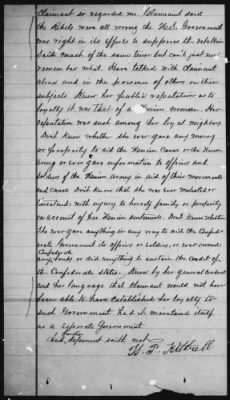 Claimant so regarded me. Claimant said
the Rebels were all wrong the U.S. Government
was right in its efforts to suppress the rebellion
Said much of the same tenor but can't just now
remember what. Have talked with Claimant
alone and in the presence of others on these
subjects Knew her public reputation as to
loyalty it was that of a Union woman. Her
reputation was such among her loyal neighbors
Dont Know whether she ever gave any money
or property to aid the Union Cause or the Union
Army or ever gave information to officers and
soldiers of the Union Army in aid of their movements
and cause Dont Know that she was ever molested or
threatened with injury to herself family or property
on account of her Union sentiments. Dont Know whether
She ever gave anything in any way to aid the Confed-
erate Government its officers or soldiers, or ever owned
Confederate
any bonds or did anything to sustain the credit of
the Confederate States. Know by her general conduct
and her language that Claimant would not have
been able to have established her loyalty to
such Government had it maintained itself
as a seperate Government
And further deponent saith not
H. P. Kittrell